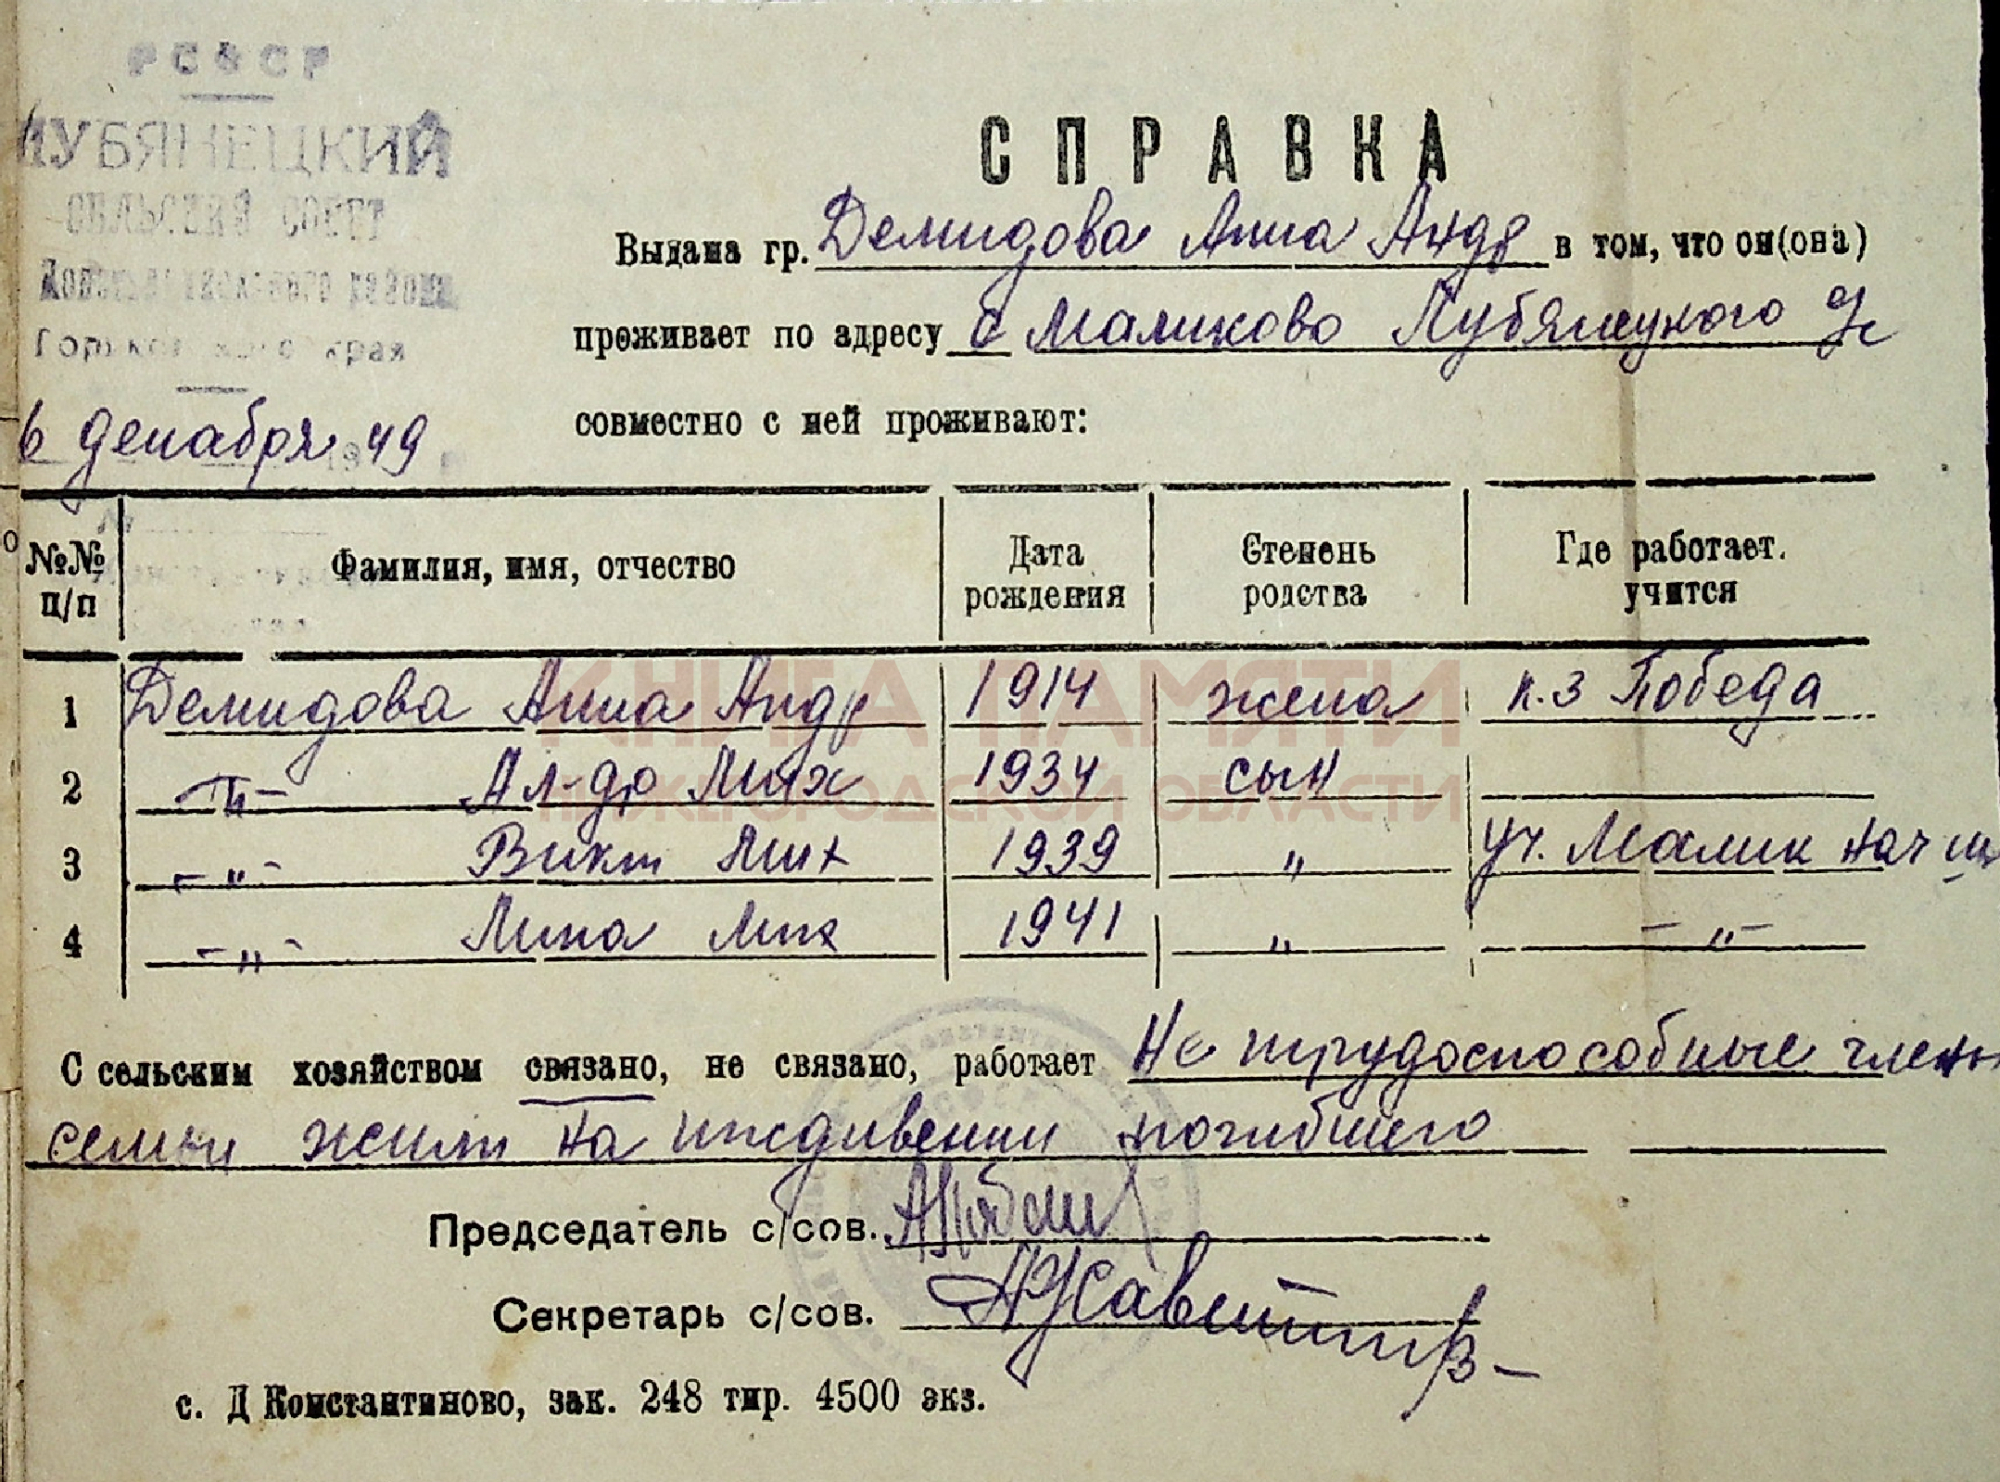 РСФСР
ЛУБЯНЕЦКИЙ
СЕЛЬСКИЙ СОВЕТ
района
края
6 декабря 1949
СПРАВКА
Выдана гр. Демидова Анна Андр в том, что он(она)
проживает по адресу с Маликово Лубянецкого
совместно с ней проживают:
№№ п/п Фамилия, имя, отчество Дата рождения Степень родства Где работает. учится
КНИГА ПАМЯТИ
НИЖЕГОРОДСКОЙ ОБЛАСТИ
1 Демидова Анна Андр 1914 жена к.з Победа
2 -"- Ал-др Мих 1934 сын
3 -"- Викт Мих 1939 " уч. Малик нач
4 -"- Лина Мих 1941 " -"-
С сельским хозяйством связано, не связано, работает Не трудоспособные члены
семьи жили на иждивении погибшего
Председатель с/сов.
Секретарь с/сов.
с. Д Константиново, зак. 248 тир. 4500 экз.